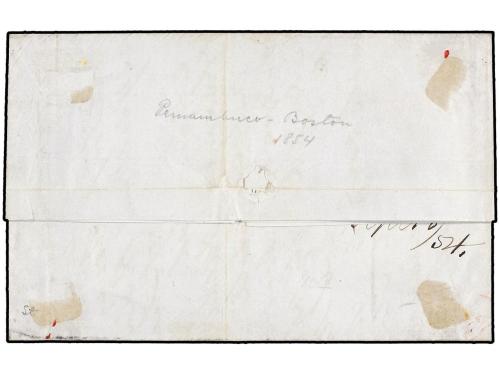 Pernambuco - Boston
1854
/54.